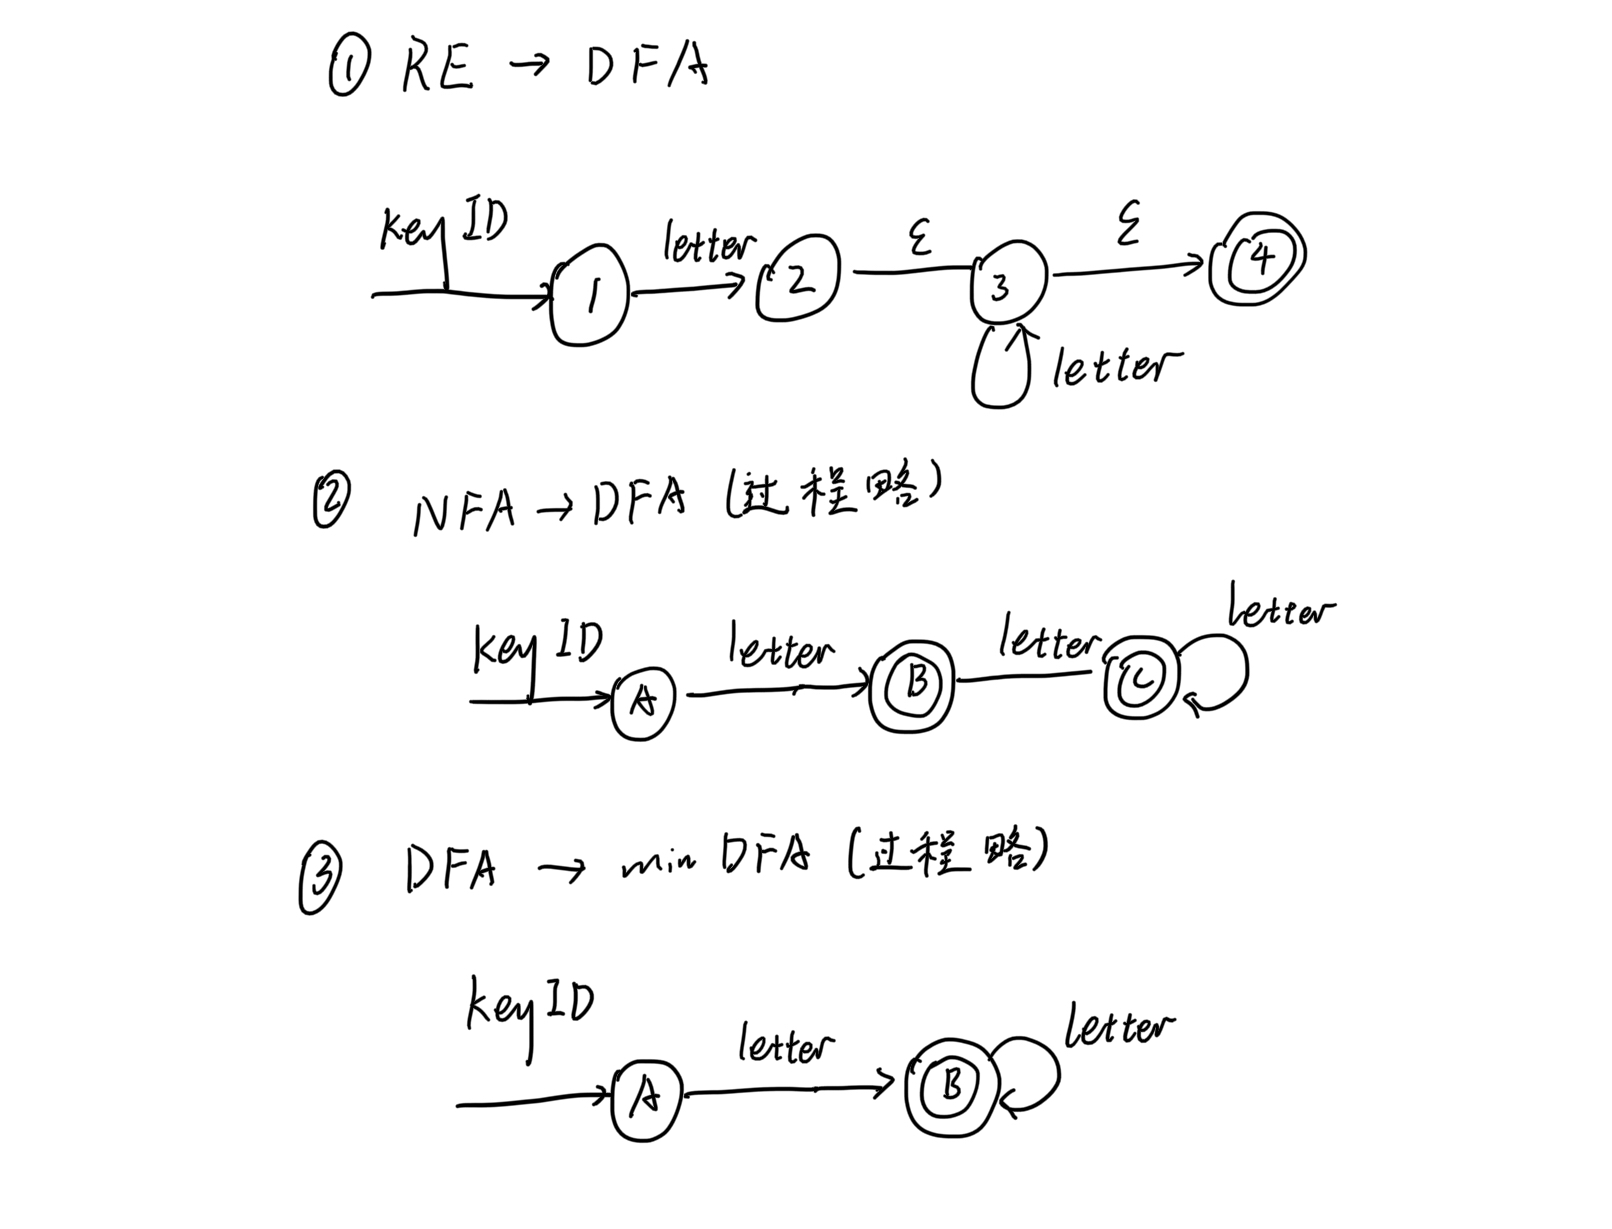 ① RE → DFA
key ID
letter
ε
ε
1
2
3
4
letter
② NFA → DFA (过程略)
key ID
letter
letter
letter
A
B
C
③ DFA → min DFA (过程略)
key ID
letter
letter
A
B